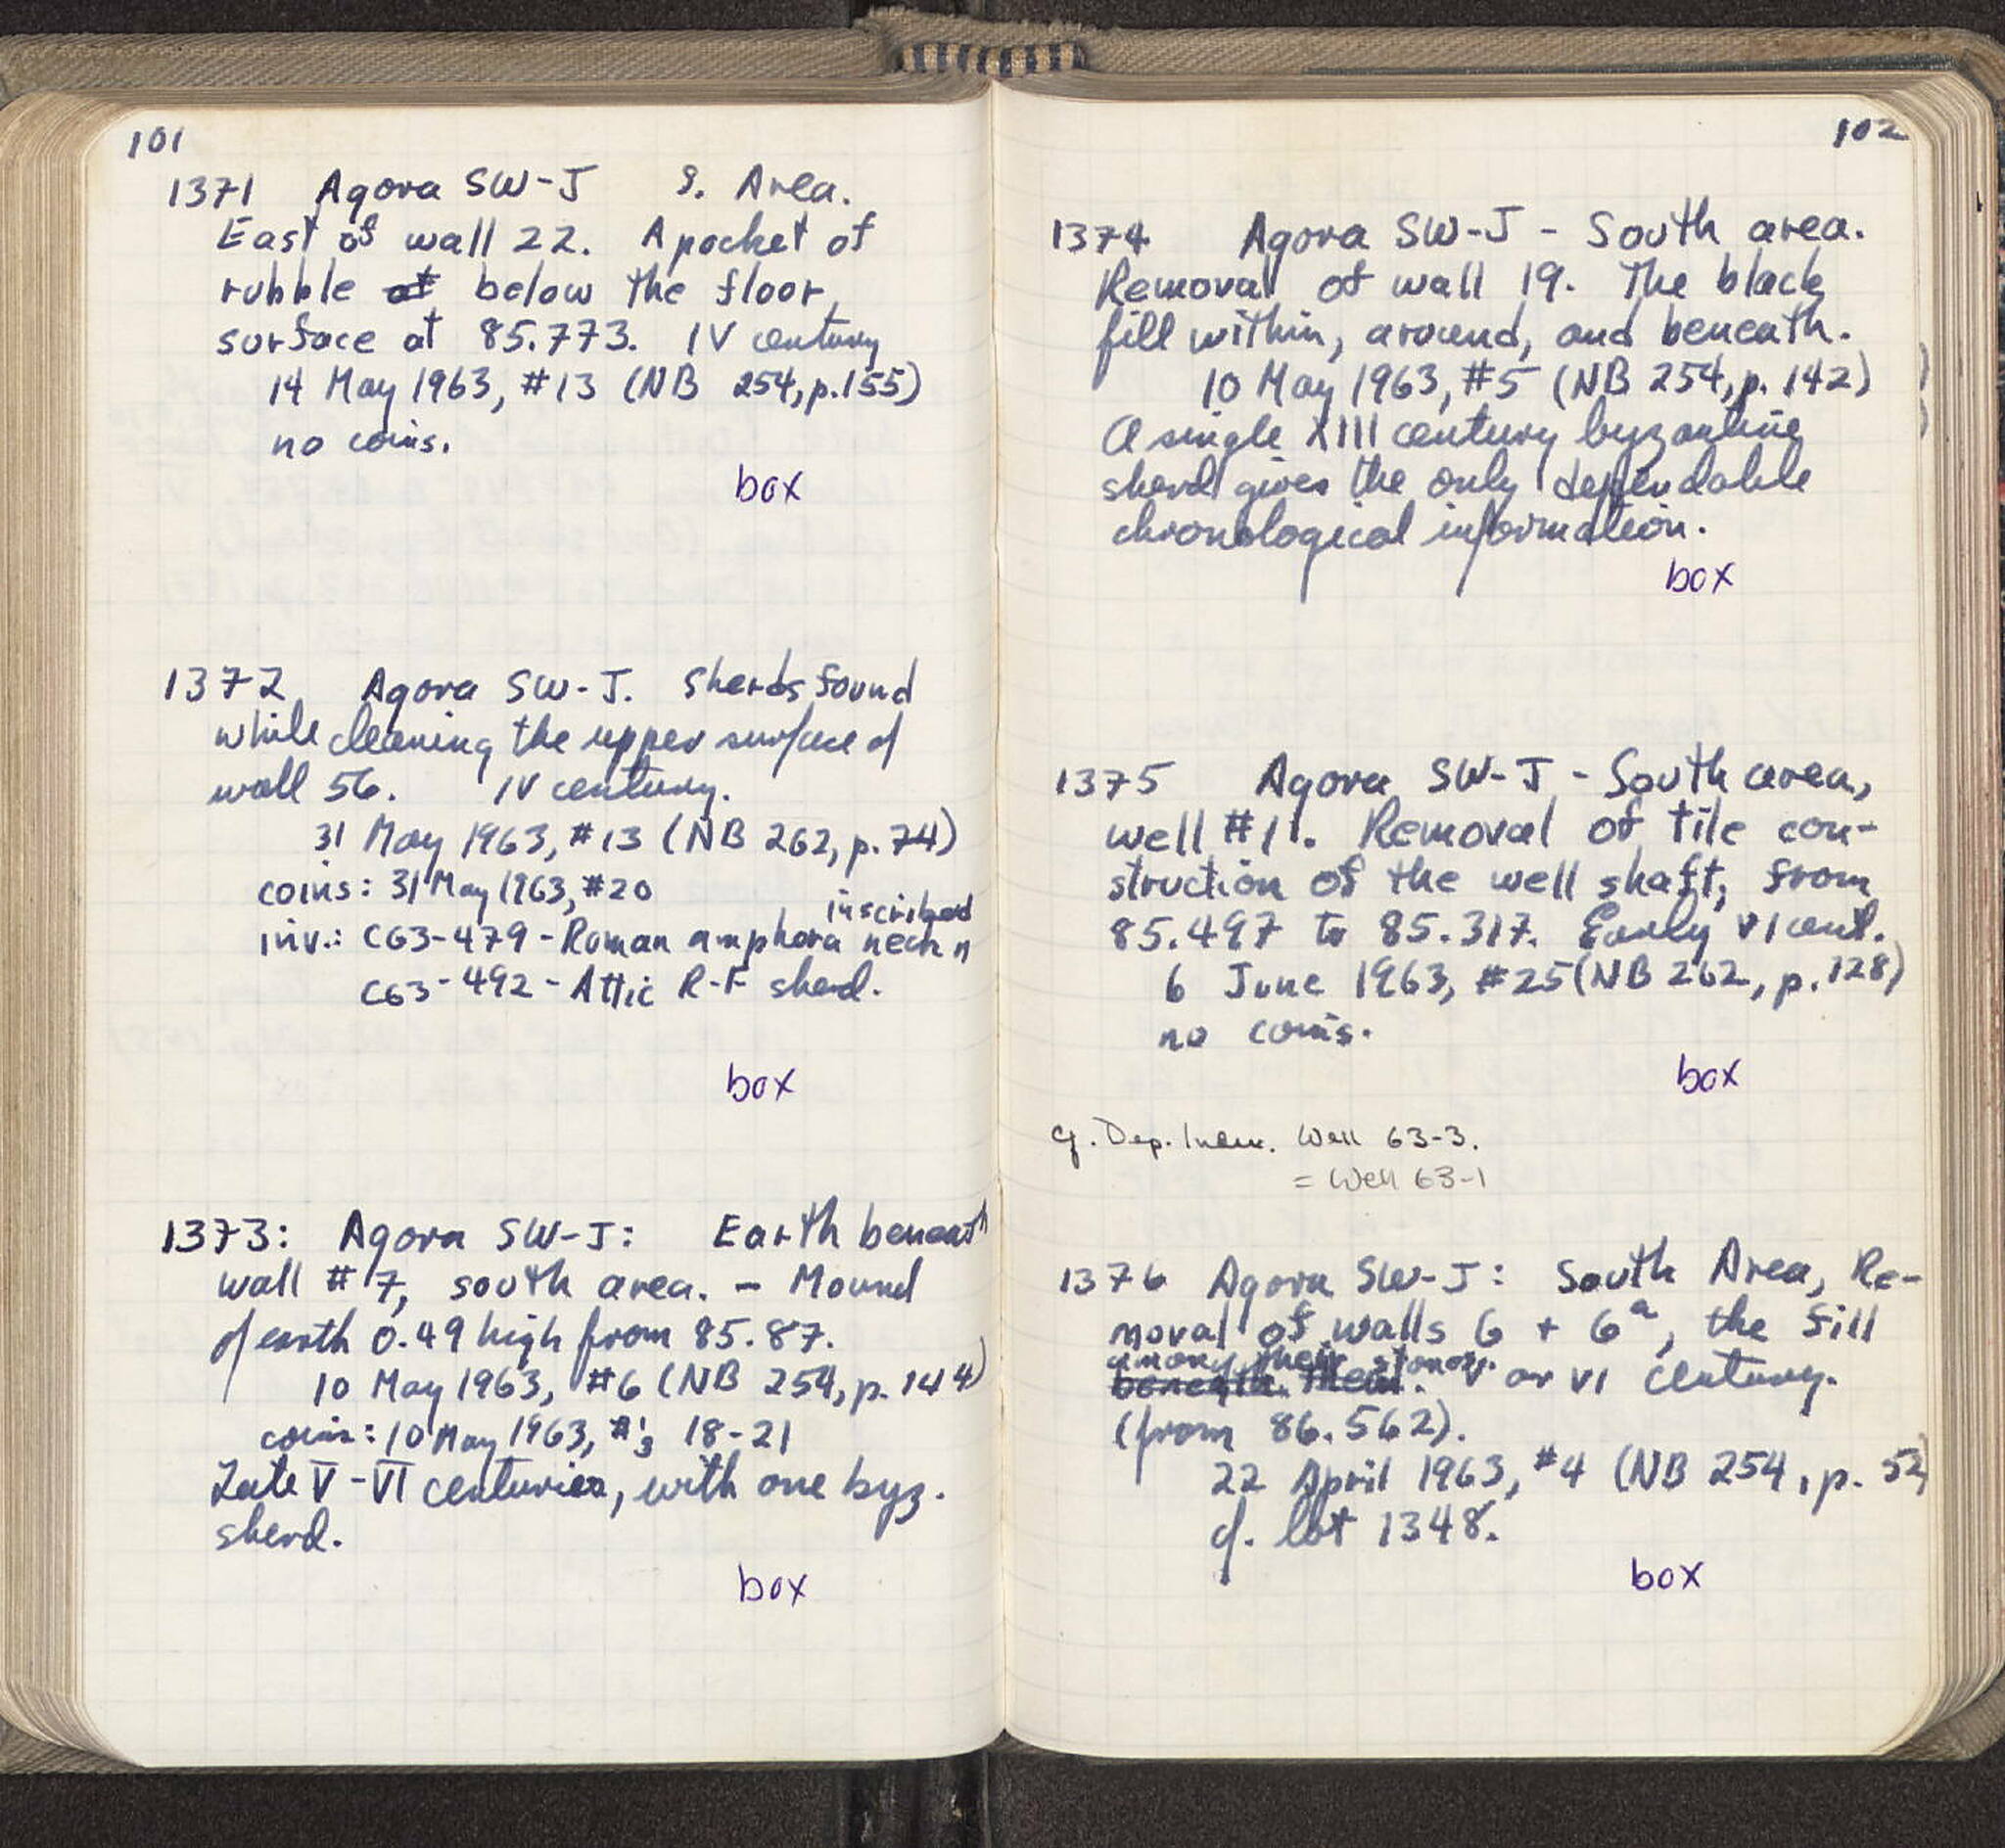 101
1371 Agora SW-J S. Area.
East of wall 22. A pocket of
rubble at below the floor
surface at 85.773. IV century
14 May 1963, #13 (NB 254, p.155)
no coins.
box
1372 Agora SW-J. Sherds found
while cleaning the upper surface of
wall 56. IV century.
31 May 1963, #13 (NB 262, p.74)
coins: 31 May 1963, #20
inscribed
inv.: C63-479 - Roman amphora neck
C63-492 - Attic R-F sherd.
box
1373: Agora SW-J: Earth beneath
wall #7, south area. - Mound
of earth 0.49 high from 85.87.
10 May 1963, #6 (NB 254, p. 144)
coins: 10 May 1963, #'s 18-21
Late V-VI centuries, with one byz.
sherd.
box
102
1374 Agora SW-J - South area.
Removal of wall 19. The black
fill within, around, and beneath.
10 May 1963, #5 (NB 254, p. 142)
A single XIII century byzantine
sherd gives the only dependable
chronological information.
box
1375 Agora SW-J - South area,
well #1. Removal of tile con-
struction of the well shaft, from
85.497 to 85.317. Early VI cent.
6 June 1963, #25 (NB 262, p. 128)
no coins.
box
cf. Dep. Inven. Well 63-3.
= Well 63-1
1376 Agora SW-J: South Area, Re-
moval of walls 6 + 6a, the fill
among their stones.
beneath them. V or VI century.
(from 86.562).
22 April 1963, #4 (NB 254, p. 52)
cf. lot 1348.
box